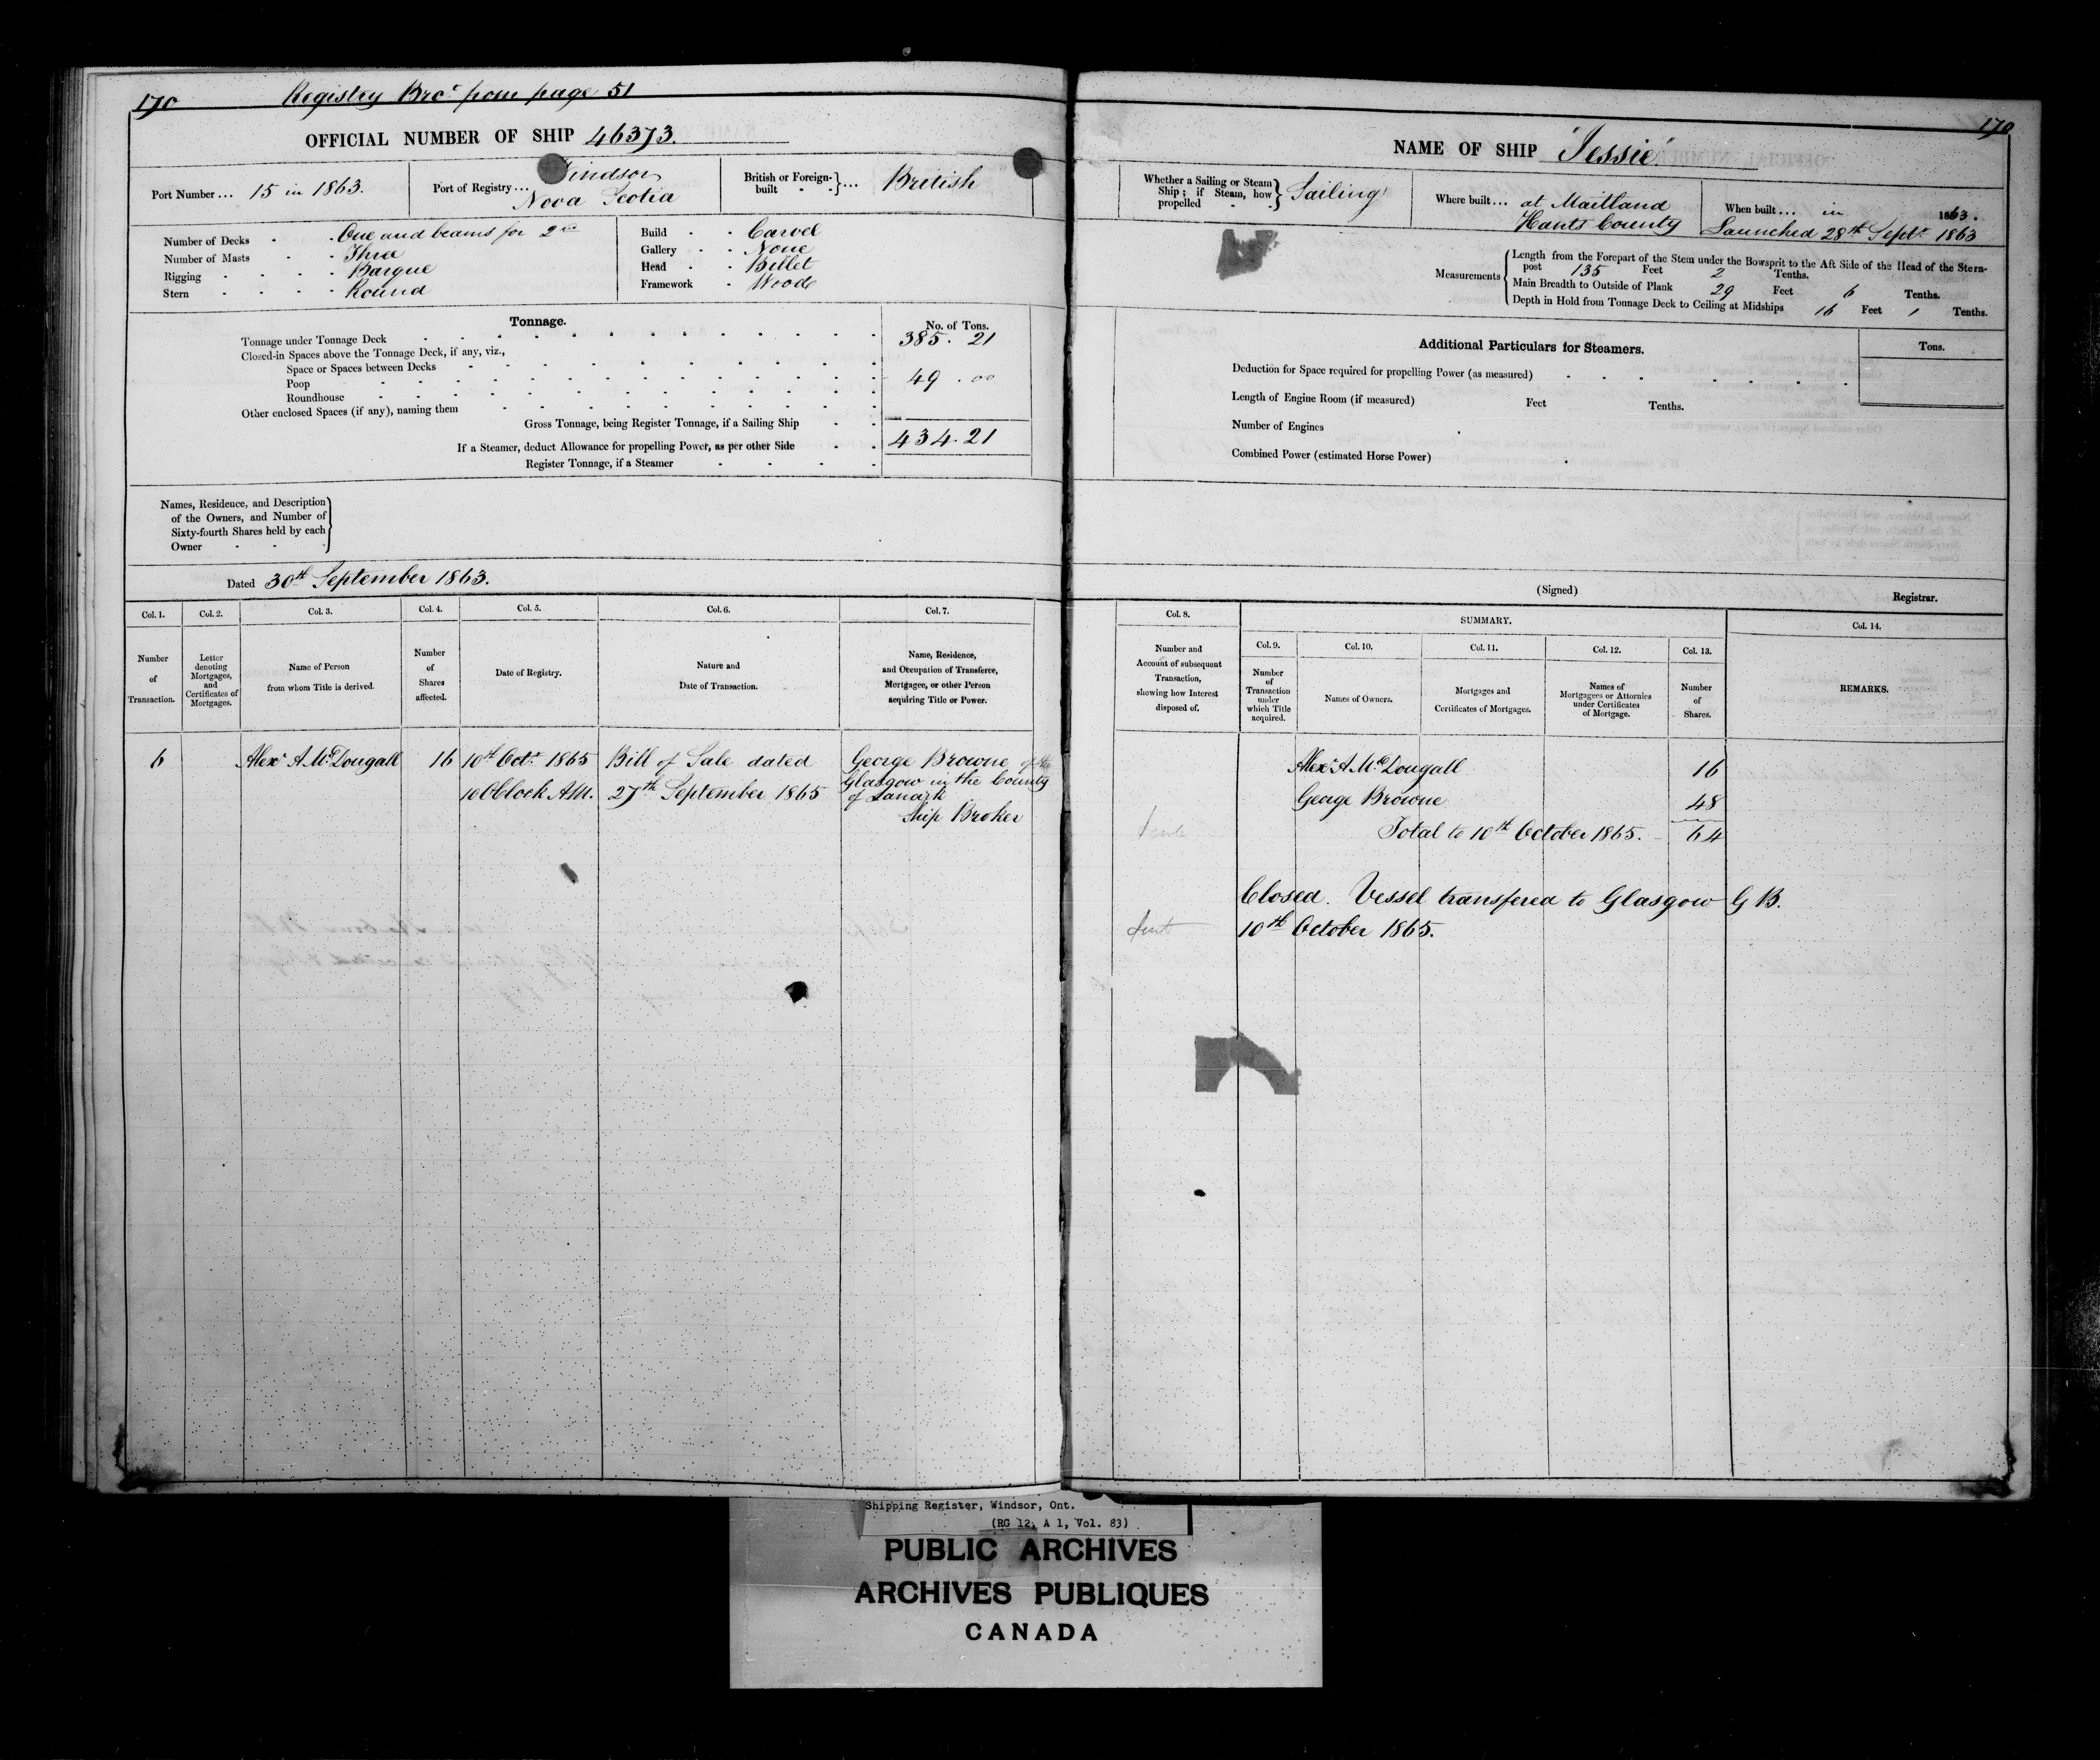 170 Registry Bro.t from page 51
OFFICIAL NUMBER OF SHIP 46373.
Port Number ... 15 in 1863.
Port of Registry ... Windsor
Nova Scotia
British or Foreign-built } ... British
Number of Decks - - One and beams for 2nd
Number of Masts - - Three
Rigging - - - - Barque
Stern - - - - Round
Build - - Carvel
Gallery - - None
Head - - Billet
Framework - Wood
Tonnage.
No. of Tons.
Tonnage under Tonnage Deck 385.21
Closed-in Spaces above the Tonnage Deck, if any, viz.,
Space or Spaces between Decks
Poop 49.00
Roundhouse
Other enclosed Spaces (if any), naming them
Gross Tonnage, being Register Tonnage, if a Sailing Ship 434.21
If a Steamer, deduct Allowance for propelling Power, as per other Side
Register Tonnage, if a Steamer
Names, Residence, and Description
of the Owners, and Number of
Sixty-fourth Shares held by each
Owner
Dated 30th September 1863.
Col. 1. Col. 2. Col. 3. Col. 4. Col. 5. Col. 6. Col. 7.
Number of Transaction.
Letter denoting Mortgages, and Certificates of Mortgages.
Name of Person from whom Title is derived.
Number of Shares affected.
Date of Registry.
Nature and Date of Transaction.
Name, Residence, and Occupation of Transferee, Mortgagee, or other Person acquiring Title or Power.
6 Alexr A McDougall 16 10th Octr 1865 Bill of Sale dated George Browne of
10 OClock AM. 27th September 1865 Glasgow in the County
of Lanark
Ship Broker
170
NAME OF SHIP "Jessie"
Whether a Sailing or Steam Ship; if Steam, how propelled } Sailing
Where built ... at Maitland
Hants County
When built ... in 1863.
Launched 28th Septr 1863
Measurements
Length from the Forepart of the Stem under the Bowsprit to the Aft Side of the Head of the Stern-
post 135 Feet 2 Tenths.
Main Breadth to Outside of Plank 29 Feet 6 Tenths.
Depth in Hold from Tonnage Deck to Ceiling at Midships 16 Feet 1 Tenths.
Additional Particulars for Steamers.
Tons.
Deduction for Space required for propelling Power (as measured)
Length of Engine Room (if measured) Feet Tenths.
Number of Engines
Combined Power (estimated Horse Power)
(Signed) Registrar.
Col. 8. SUMMARY. Col. 14.
Col. 9. Col. 10. Col. 11. Col. 12. Col. 13.
Number and Account of subsequent Transaction, showing how Interest disposed of.
Number of Transaction under which Title acquired.
Names of Owners.
Mortgages and Certificates of Mortgages.
Names of Mortgagees or Attornies under Certificates of Mortgage.
Number of Shares.
REMARKS.
Alexr A McDougall 16
George Browne 48
Total to 10th October 1865. 64
Closed. Vessel transfered to Glasgow G B.
10th October 1865.
Shipping Register, Windsor, Ont.
(RG 12, A 1, Vol. 83)
PUBLIC ARCHIVES
ARCHIVES PUBLIQUES
CANADA